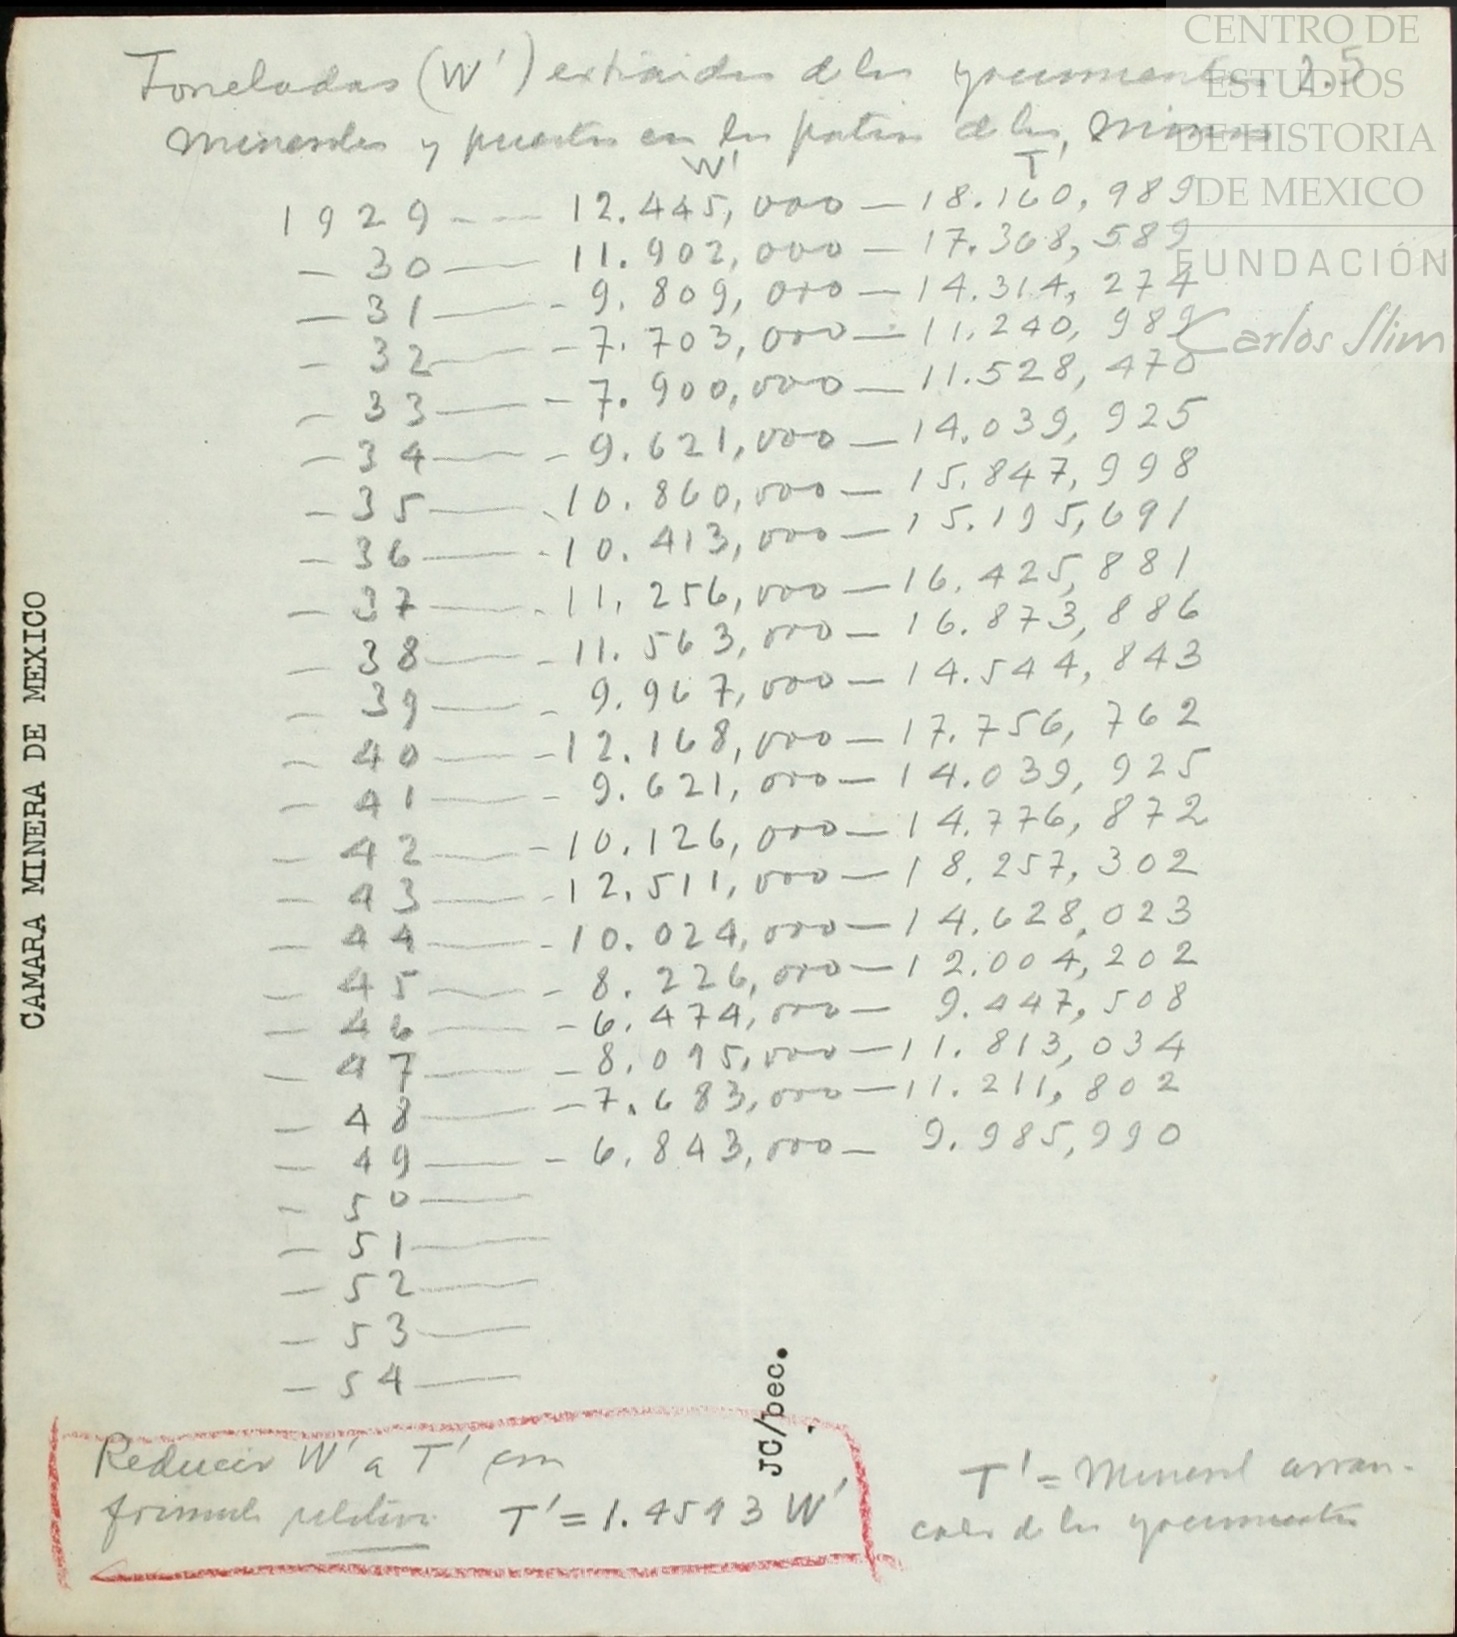 Toneladas (W') extraidas de los yacimientos 2.5
minerales y puestas en los patios de las minas
W' T'
1929 --- 12.445,000 — 18.160,989
— 30 — 11.902,000 — 17.368,589
— 31 — - 9.809,000 — 14.314,274
— 32 — - 7.703,000 — 11.240,989
— 33 — - 7.900,000 — 11.528,470
— 34 — - 9.621,000 — 14.039,925
— 35 — - 10.860,000 — 15.847,998
— 36 — - 10.413,000 — 15.195,691
— 37 — - 11.256,000 — 16.425,881
— 38 — - 11.563,000 — 16.873,886
— 39 — - 9.967,000 — 14.544,843
— 40 — - 12.168,000 — 17.756,762
— 41 — - 9.621,000 — 14.039,925
— 42 — - 10.126,000 — 14.776,872
— 43 — - 12.511,000 — 18.257,302
— 44 — - 10.024,000 — 14.628,023
— 45 — - 8.226,000 — 12.004,202
— 46 — - 6.474,000 — 9.447,508
— 47 — - 8.095,000 — 11.813,034
— 48 — - 7.683,000 — 11.211,802
— 49 — - 6.843,000 — 9.985,990
— 50 —
— 51 —
— 52 —
— 53 —
— 54 —
Reducir W' a T' con
formula relativa T' = 1.4593 W'
T' = Mineral arran-
cado de los yacimientos
CAMARA MINERA DE MEXICO
JC/bec.
CENTRO DE
ESTUDIOS
DE HISTORIA
DE MEXICO
FUNDACIÓN
Carlos Slim